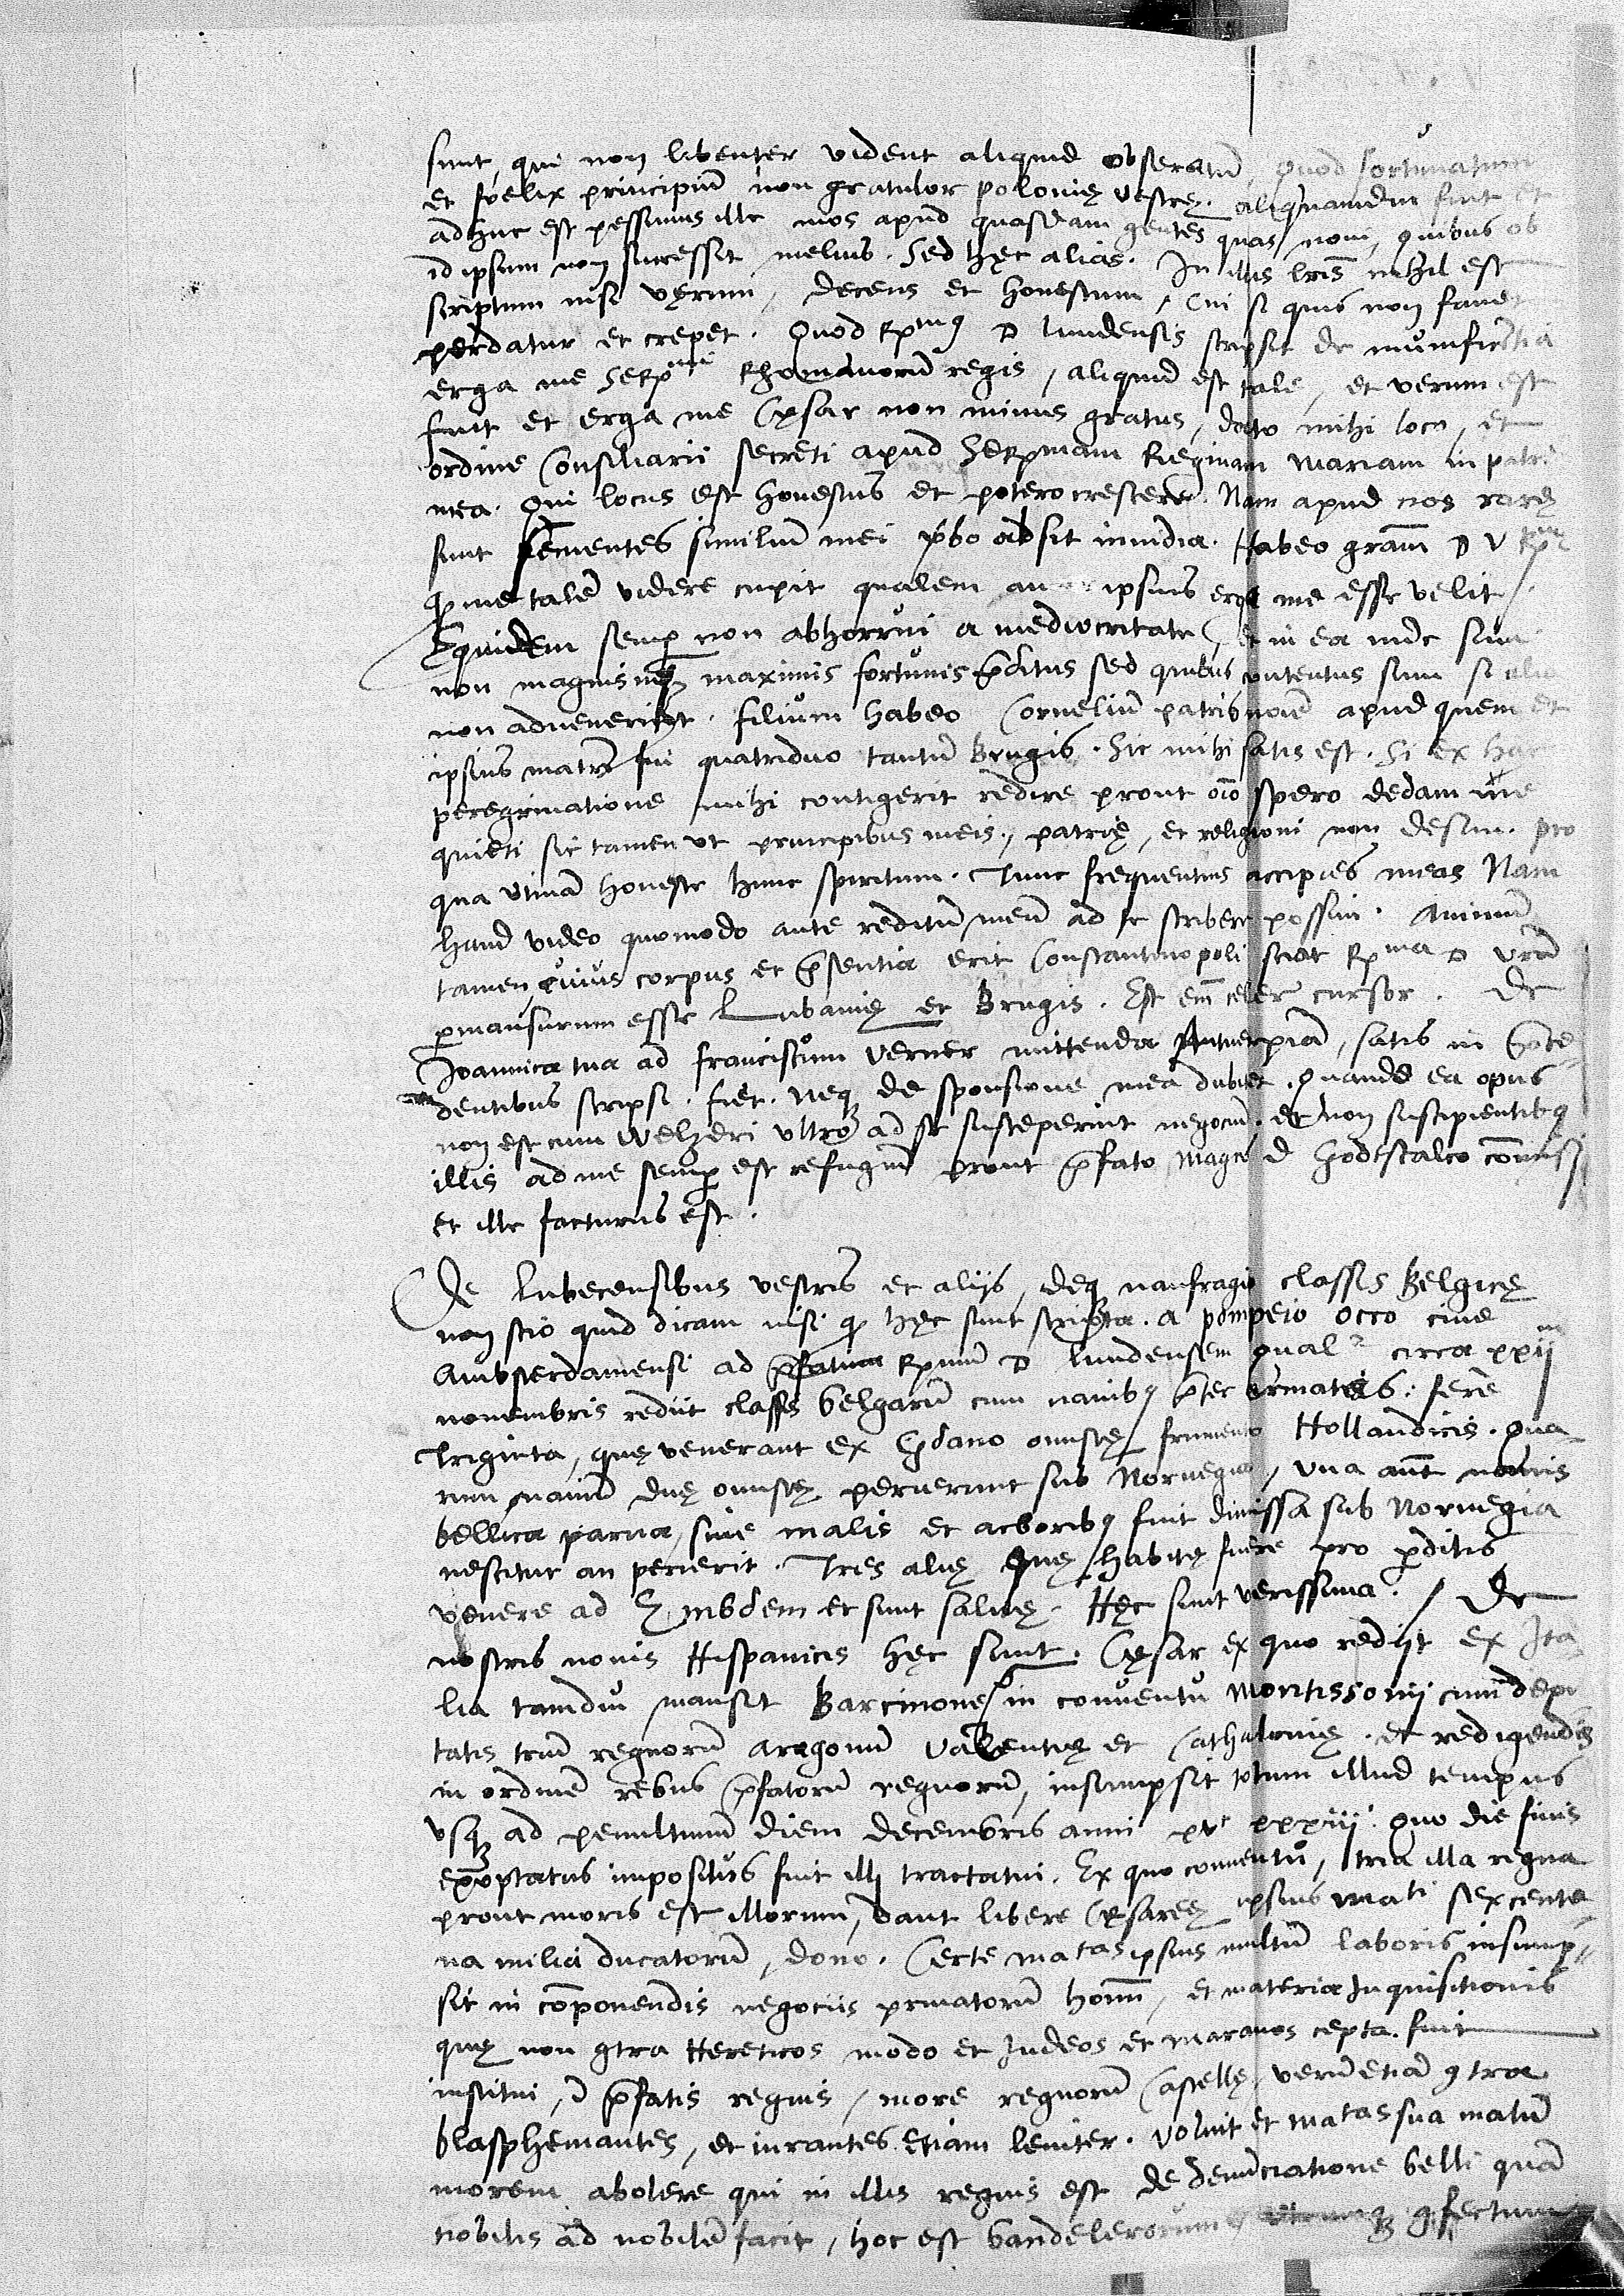 sunt, qui non libenter vident aliquid obseratum, Quod fortunatum
et foelix principium non gratulor polonię vestrę. aliquamdiu fuit et
adhuc est pessimus ille mos apud quasdam gentes quas novi, quibus ob
id ipsum non successit melius. Sed hęc alias. In illis lris nihil est
scriptum nisi verum, decens et honestum, Cui si quis non favet
perdatur et crepet. Quod Rpmus D Lundensis scripsit de munificentia
erga me Ser Rhomanorum regis, aliquid est tale, et verum est
fuit et erga me Cęsar non minus gratus, dato mihi loco, et
ordine Consiliarii secreti apud Sermam Reginam Mariam in patria
mea. Qui locus est honestus et potero crescere. Nam apud nos rarę
sunt sementes similium mei verbo absit invidia. Habeo gram D V Rpme
quod me talem videre cupit qualem ipsius erga me esse velit.
Equidem semper non abhorrui a mediocritate, et in ea inde sum
non magnis neque maximis fortunis praeditus sed quibus contentus sum si alie
non advenerint. filium habeo Cornelium patris noie apud quem et
ipsius matrem fui quatriduo tantum Brugis. Sic mihi satis est. Si ex hac
peregrinatione mihi contigerit redire prout oio spero dedam me
quieti sic tamen ut principibus meis, patrię, et religioni non desim. pro
qua utinam honeste hunc spiritum. Tunc frequentius accipies meas Nam
haud video quomodo ante reditum meum ad te scribere possim. Animum
tamen, cuius corpus et praesentia erit Constantinopoli sciat Rpma D vra
permansurum esse Lubavię et Brugis. Est enim celer cursor. De
Ioannica tua ad franciscum Verner mittenda Antuerpiam, satis in praece
dentibus scripsi. fiet. neque de sponsione mea dubitet. Quando ea opus
non est cum Welzeri ultro ad se susceperint negocium, et non suscipientibus
illis ad me semper est refugium prout praefato Magco D Godtscalco commisi
et ille facturus est.
De Lubecensibus vestris et aliis, deque naufragio classis Belgicę
non scio quid dicam nisi quod hęc sunt scripta. a Pompeio Occo cive
Ambsterdamensi ad praefatum Rpmum D Lundensem qualr circa xxij
novembris rediit classis belgarum cum navibus praeter armatas. fere
Triginta, quę venerant ex Gdano onustę frumento Hollandicis. Qua
rum navium duę onustę perierunt sub Norvegia, Una aut navis
bellica parva, sine malis et arboribus fuit dimissa sub Norvegia
nescitur an perierit. Tres alię quę habitę fuere pro perditis
venere ad Embdem et sunt salvę. Hęc sunt verissima. / De
nostris novis Hispanicis hęc sunt. Cęsar ex quo rediit ex Ita
lia tamdiu mansit Barcinone, in conventu Montissonij cum depu
tatis trium regnorum Aragonum Valentię et Cathalonię. et redigendis
in ordinem rebus praefatorum regnorum, insumpsit totum illud tempus
usque ad penultimum diem decembris anni xvc xxxiij. Quo die finis
exoptatus impositus fuit illi tractatui. Ex quo conventu, tria illa regna
prout moris est illorum, dant libere Cęsareę ipsius Mati sexcente
na milia ducatorum, dono. Certe Matas ipsius multum laboris insump
sit in componendis negociis privatorum hominum, et materia Inquisitionis
quę non contra Hereticos modo et Iudeos et Maranos cepta fuit
institui, in praefatis regnis, more regnorum Castellę, verum etiam contra
blasphemantes, et iurantes etiam leviter. Voluit et Matas sua malum
morem abolere qui in illis regnis est de denunciatione belli quam
nobilis ad nobilem facit, hoc est bandelerorum utrumque confectum